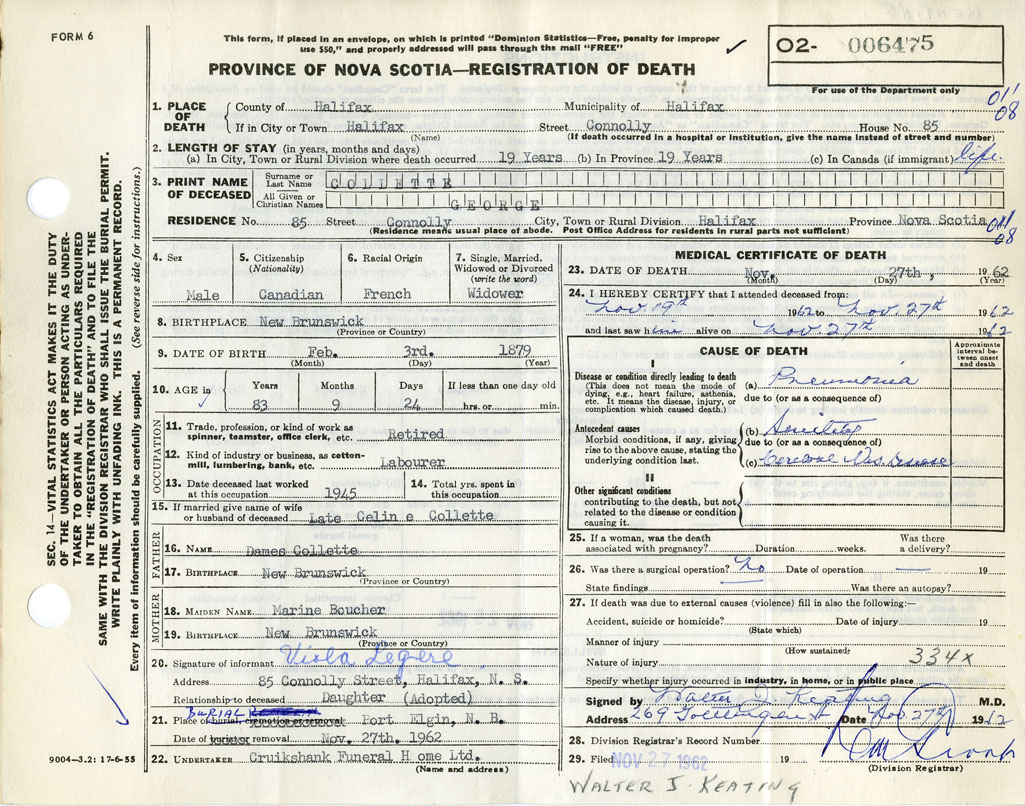 FORM 6
This form, if placed in an envelope, on which is printed "Dominion Statistics—Free, penalty for improper
use $50," and properly addressed will pass through the mail "FREE"
✓
O2- 006475
PROVINCE OF NOVA SCOTIA—REGISTRATION OF DEATH
For use of the Department only
011
08
1. PLACE OF DEATH
County of Halifax Municipality of Halifax
If in City or Town Halifax Street Connolly House No. 85
(Name) (If death occurred in a hospital or institution, give the name instead of street and number)
2. LENGTH OF STAY (in years, months and days)
(a) In City, Town or Rural Division where death occurred 19 Years (b) In Province 19 Years (c) In Canada (if immigrant) life.
3. PRINT NAME OF DECEASED
Surname or Last Name COLLETTE
All Given or Christian Names GEORGE
RESIDENCE No. 85 Street Connolly City, Town or Rural Division Halifax Province Nova Scotia
011
08
(Residence means usual place of abode. Post Office Address for residents in rural parts not sufficient)
4. Sex
Male
5. Citizenship
(Nationality)
Canadian
6. Racial Origin
French
7. Single, Married,
Widowed or Divorced
(write the word)
Widower
8. BIRTHPLACE New Brunswick
(Province or Country)
9. DATE OF BIRTH Feb. 3rd. 1879
(Month) (Day) (Year)
10. AGE in ✓
Years Months Days If less than one day old
83 9 24 hrs. or min.
OCCUPATION
11. Trade, profession, or kind of work as
spinner, teamster, office clerk, etc. Retired
12. Kind of industry or business, as cotton-
mill, lumbering, bank, etc. Labourer
13. Date deceased last worked
at this occupation 1945
14. Total yrs. spent in
this occupation
15. If married give name of wife
or husband of deceased Late Celin e Collette
FATHER
16. NAME Dames Collette
17. BIRTHPLACE New Brunswick
(Province or Country)
MOTHER
18. MAIDEN NAME Marine Boucher
19. BIRTHPLACE New Brunswick
(Province or Country)
20. Signature of informant Viola Legere
Address 85 Connolly Street, Halifax, N. S.
Relationship to deceased Daughter (Adopted)
BURIAL
21. Place of burial, cremation or removal Port Elgin, N. B.
Date of burial or removal Nov. 27th. 1962
22. UNDERTAKER Cruikshank Funeral H ome Ltd.
(Name and address)
MEDICAL CERTIFICATE OF DEATH
23. DATE OF DEATH Nov. 27th, 1962
(Month) (Day) (Year)
24. I HEREBY CERTIFY that I attended deceased from:
Nov. 19th 1962 to Nov. 27th 1962
and last saw him alive on Nov 27th 1962
CAUSE OF DEATH
Approximate
interval be-
tween onset
and death
I
Disease or condition directly leading to death
(This does not mean the mode of
dying, e.g., heart failure, asthenia,
etc. It means the disease, injury, or
complication which caused death.)
(a) Pneumonia
due to (or as a consequence of)
Antecedent causes
Morbid conditions, if any, giving
rise to the above cause, stating the
underlying condition last.
(b) Senility
due to (or as a consequence of)
(c) Cerebral Vas. Disease
II
Other significant conditions
contributing to the death, but not
related to the disease or condition
causing it.
25. If a woman, was the death
associated with pregnancy? Duration weeks. Was there
a delivery?
26. Was there a surgical operation? No Date of operation — 19
State findings Was there an autopsy?
27. If death was due to external causes (violence) fill in also the following:—
Accident, suicide or homicide? Date of injury 19
(State which)
Manner of injury
(How sustained)
Nature of injury 334x
Specify whether injury occurred in industry, in home, or in public place
Signed by Walter J. Keating M.D.
Address 269 Gottingen St Date Nov 27th 1962
28. Division Registrar's Record Number
29. Filed NOV 27 1962 19
(Division Registrar)
WALTER J. KEATING
SEC. 14—VITAL STATISTICS ACT MAKES IT THE DUTY
OF THE UNDERTAKER OR PERSON ACTING AS UNDER-
TAKER TO OBTAIN ALL THE PARTICULARS REQUIRED
IN THE "REGISTRATION OF DEATH" AND TO FILE THE
SAME WITH THE DIVISION REGISTRAR WHO SHALL ISSUE THE BURIAL PERMIT.
WRITE PLAINLY WITH UNFADING INK. THIS IS A PERMANENT RECORD.
Every item of information should be carefully supplied. (See reverse side for instructions.)
9004—3.2: 17-6-55